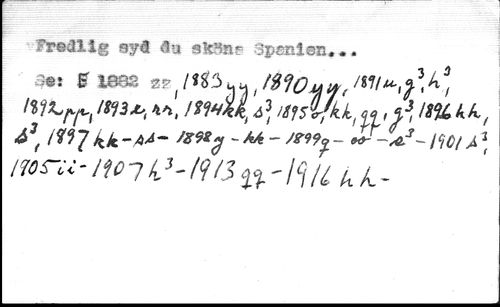 "Fredlig syd du sköna Spanien...
Se: E 1882 zz, 1883 yy, 1890 yy, 1891 u, g³, h³,
1892 pp, 1893 x, rr, 1894 kk, s³, 1895 o, kk, qq, g³, 1896 hh,
s³, 1897 kk - ss - 1898 y - kk - 1899 q - oo - s³ - 1901 s³,
1905 ii - 1907 h³ - 1913 qq - 1916 hh -